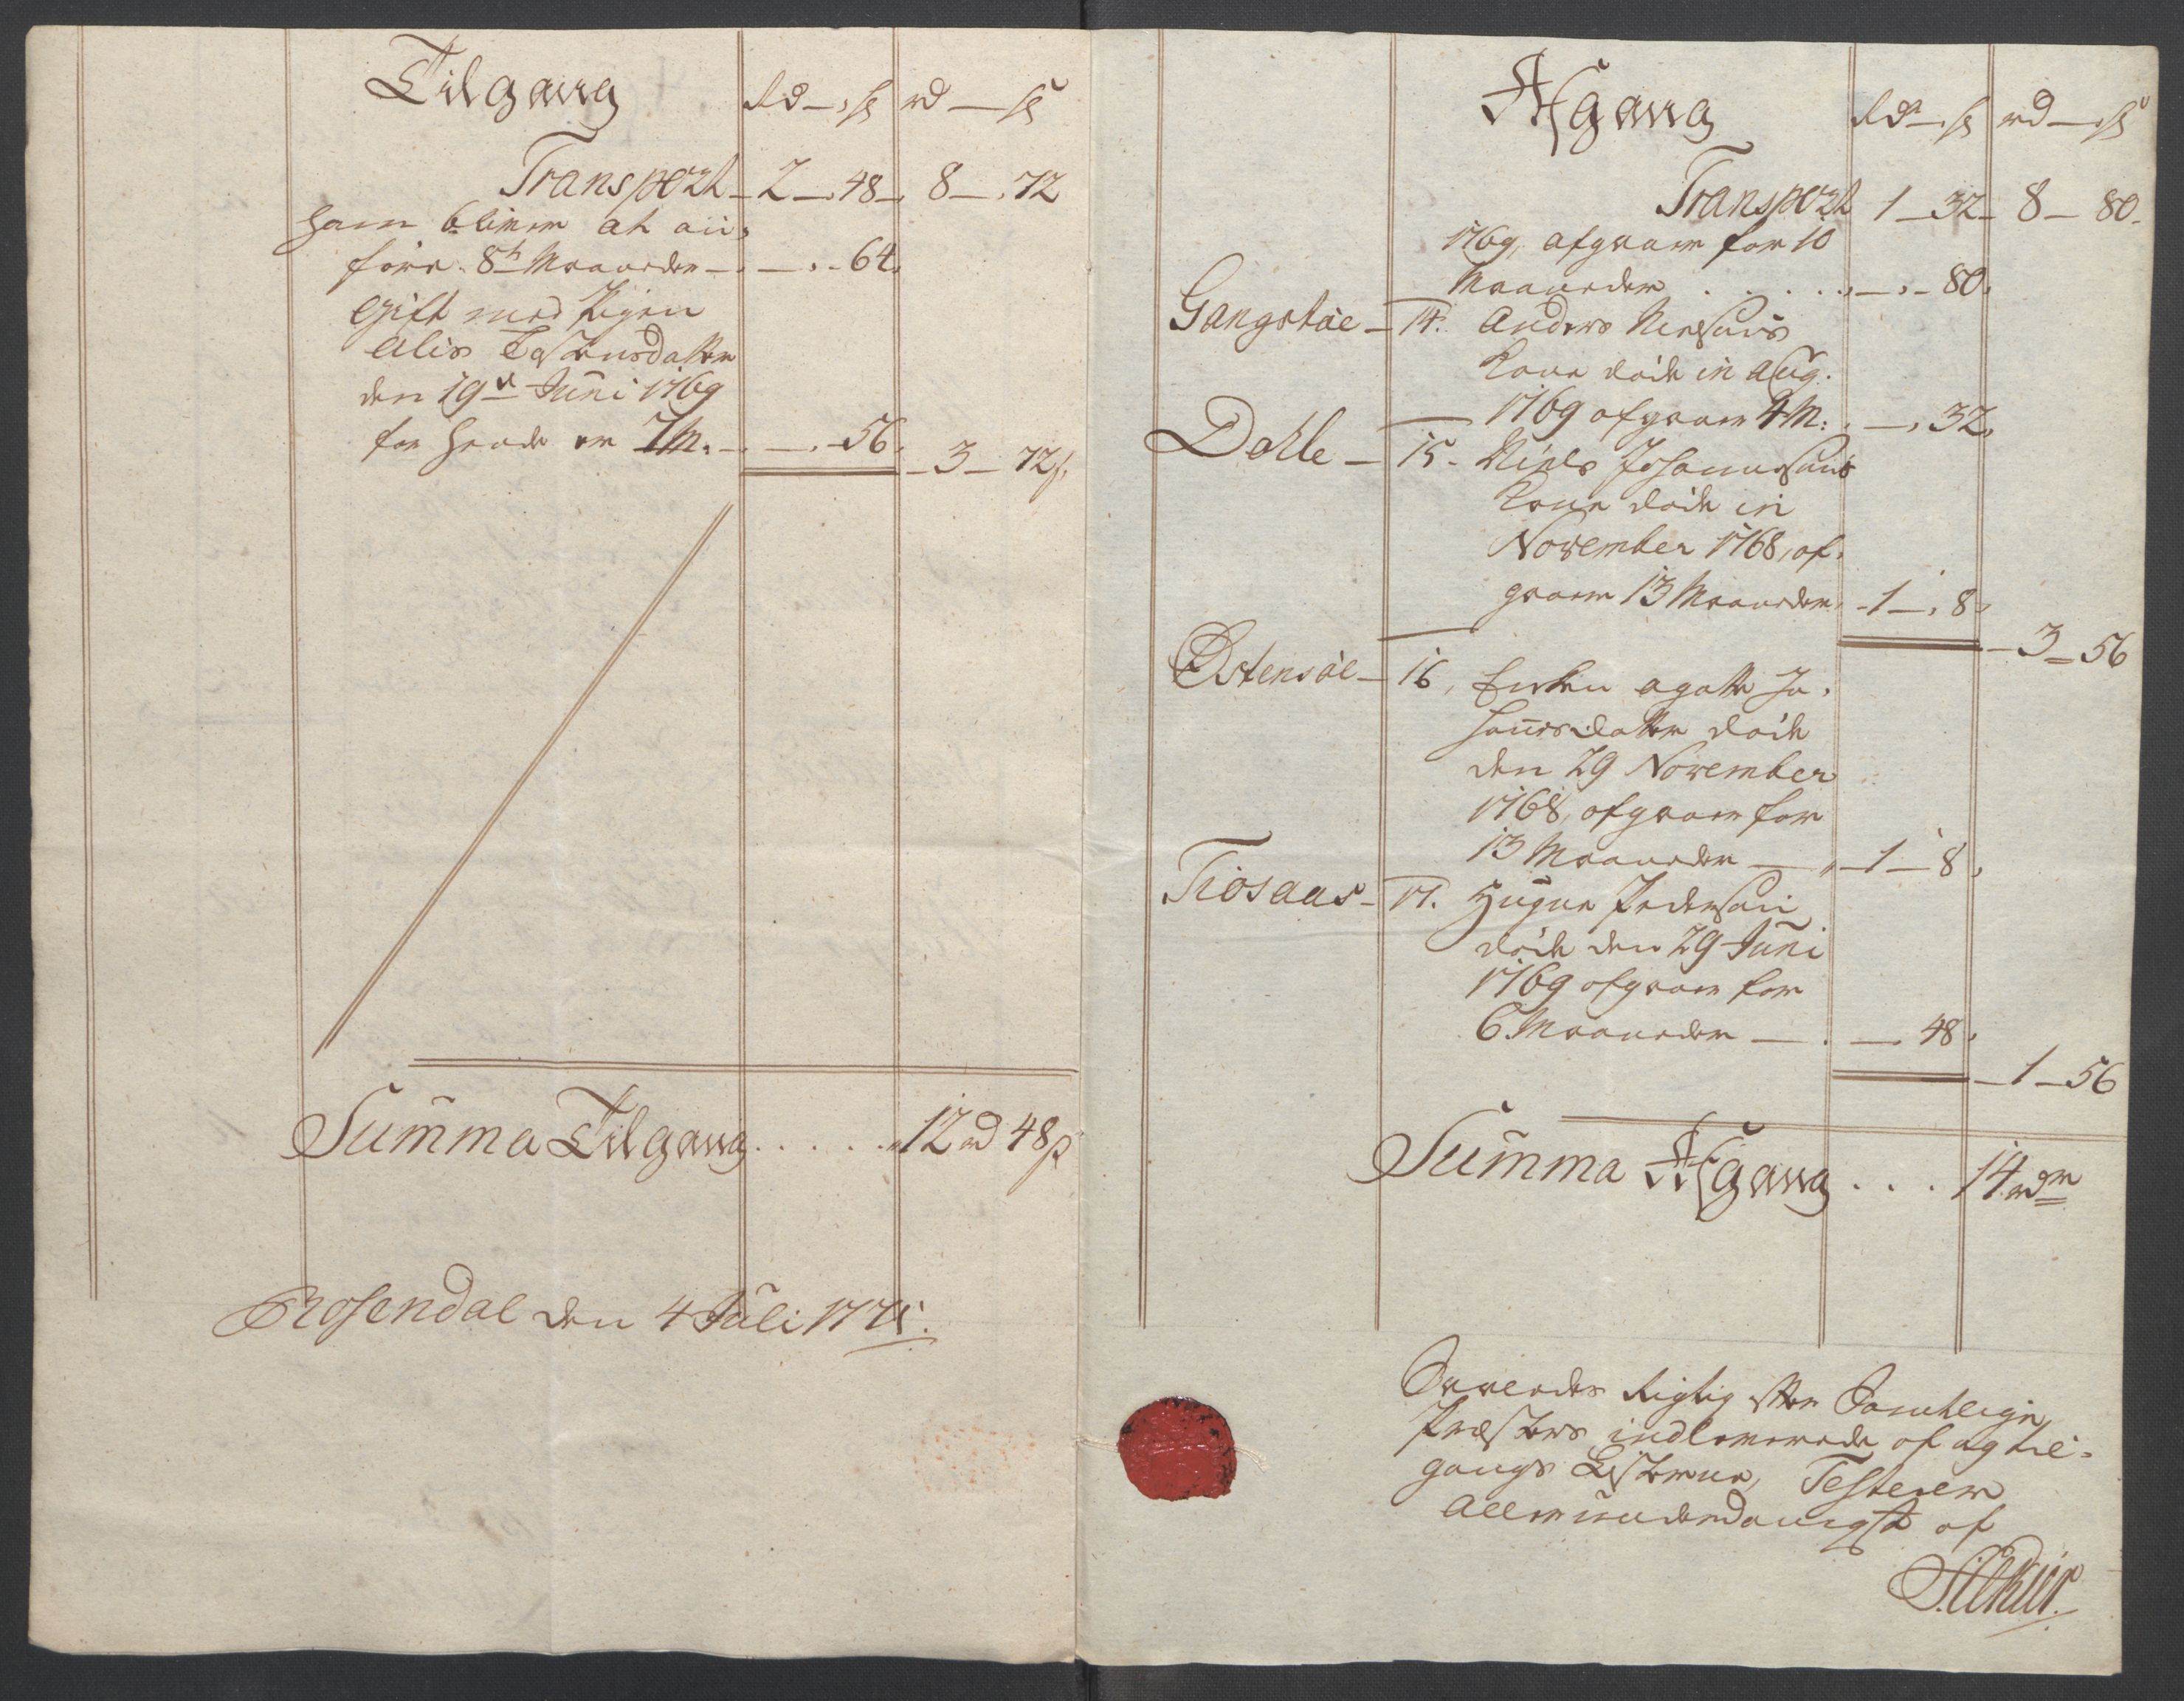 Tilgang Rd — ß rd — ß
Transport 2 — 48 8 — 72
ham bliver at an-
føre 8t Maaneder — 64
Gift med Pigen
Elis Tostensdatter
den 19de Juni 1769
for hende er 7 M. — 56
3 — 72ß
Summa Tilgang . . . . . 12 rd 48ß
Rosendal den 4 Juli 1771.
Afgang Rdr — ß rd — ß
Transport 1 — 32 8 — 80
1769, afgaaer for 10
Maaneder . . . . . — 80
Gangstøe — 14. Anders Nielsøns
Kone døde in Aug.
1769 afgaaer 4 M. — 32
Dahle — 15. Niels Johannesøns
Kone døde in
November 1768, af-
gaaer 13 Maaneder 1 — 8
3 — 56
Østensøe — 16, Enken Agatte Jo-
hannesdatter døde
den 29 November
1768, afgaaer for
13 Maaneder — 1 — 8
Tiosaas — 17. Pedersøn
døde den 29 Juni
1769 afgaaer for
6 Maaneder — 48
1 — 56
Summa Afgang . . . 14 rdr
Rigtig efter Samtlige
Præsters indleverede af og til-
gangs Listerne, Testerer
Allerunderdanigst af